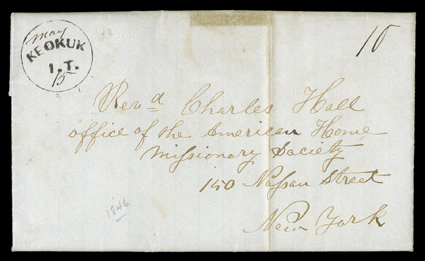 May
KEOKUK
I.T.
15
10
Revd Charles Hall
office of the American Home
Missionary Society
150 Nassau Street
New York
1846